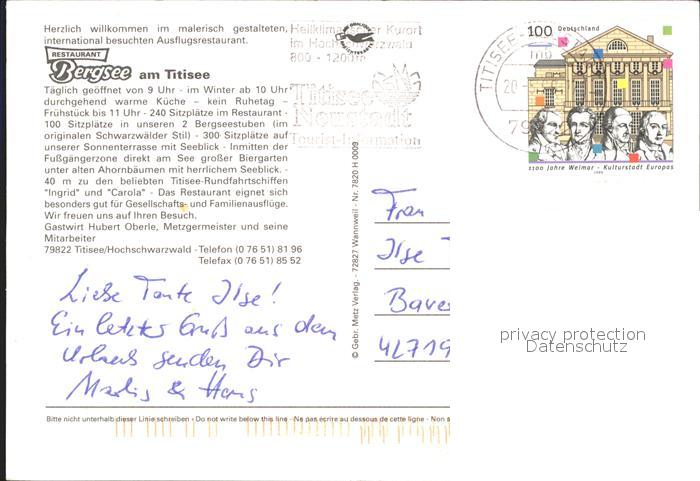 Herzlich willkommen im malerisch gestalteten,
international besuchten Ausflugsrestaurant.
RESTAURANT
Bergsee am Titisee
Täglich geöffnet von 9 Uhr - im Winter ab 10 Uhr
durchgehend warme Küche – kein Ruhetag –
Frühstück bis 11 Uhr - 240 Sitzplätze im Restaurant -
100 Sitzplätze in unseren 2 Bergseestuben (im
originalen Schwarzwälder Stil) - 300 Sitzplätze auf
unserer Sonnenterrasse mit Seeblick - Inmitten der
Fußgängerzone direkt am See großer Biergarten
unter alten Ahornbäumen mit herrlichem Seeblick. -
40 m zu den beliebten Titisee-Rundfahrtschiffen
"Ingrid" und "Carola" - Das Restaurant eignet sich
besonders gut für Gesellschafts- und Familienausflüge.
Wir freuen uns auf Ihren Besuch.
Gastwirt Hubert Oberle, Metzgermeister und seine
Mitarbeiter
79822 Titisee/Hochschwarzwald - Telefon (0 76 51) 81 96
Telefax (0 76 51) 85 52
Liebe Tante Ilse!
Ein letzter Gruß aus dem
Urlaub senden Dir
Marlis & Hans
Bitte nicht unterhalb dieser Linie schreiben - Do not write below this line - Ne pas écrire au dessous de cette ligne - Non s
© Gebr. Metz Verlag. - 72827 Wannweil - Nr. 7820 H 0009
Heilklimatischer Kurort
im Hochschwarzwald
800 - 1200m
Titisee
Neustadt
Tourist-Information
TITISEE-
20.
79
100 Deutschland
1100 Jahre Weimar - Kulturstadt Europas
1999
Frau
Ilse
Baue
42719
privacy protection
Datenschutz